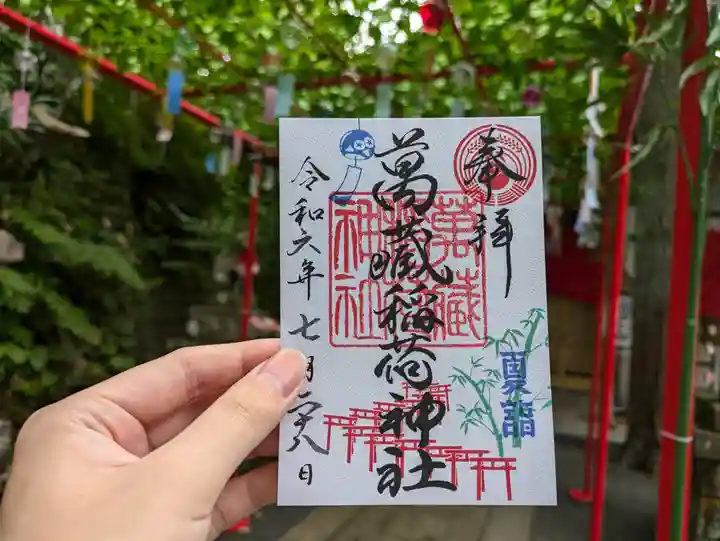 奉拝
萬蔵稲荷神社
萬蔵
稲荷
神社
夏詣
令和六年七月二十八日